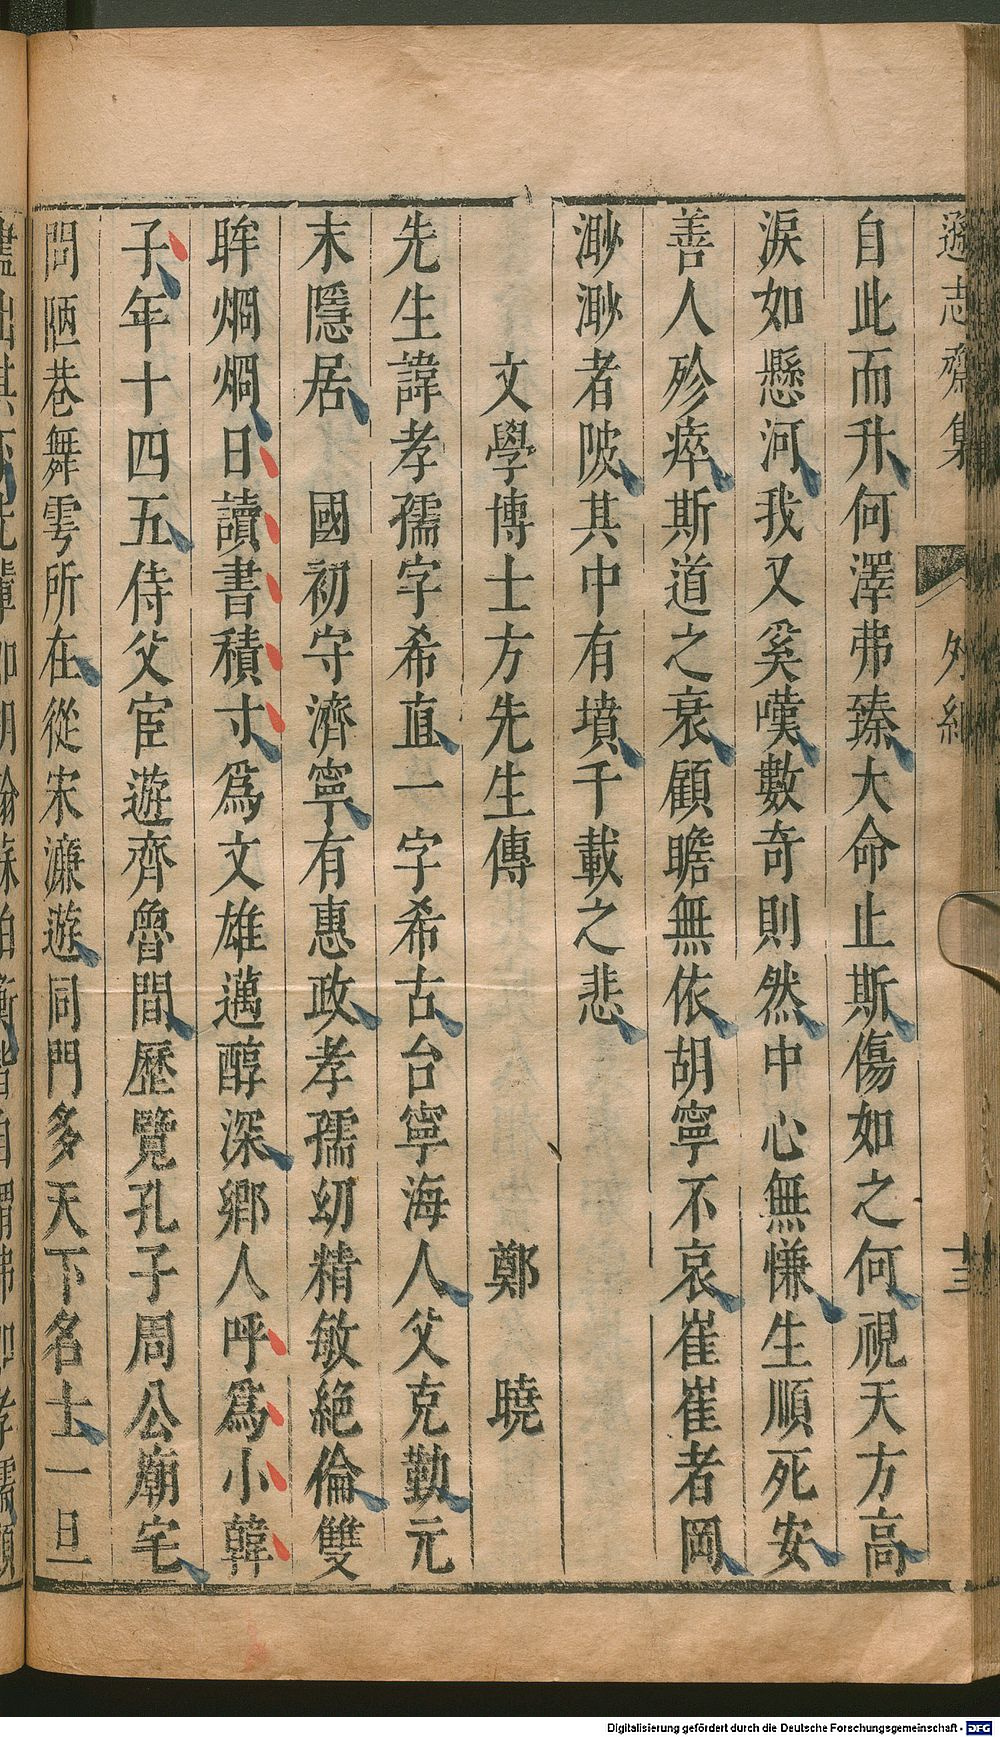 遜志齋集 外紀 十三
自此而升何澤弗臻大命止斯傷如之何視天方高
淚如懸河我又奚嘆數奇則然中心無慊生順死安
善人殄瘁斯道之衰顧瞻無依胡寧不哀崔崔者岡
渺渺者陂其中有墳千載之悲
文學博士方先生傳 鄭曉
先生諱孝孺字希直一字希古台寧海人父克勤元
末隱居 國初守濟寧有惠政孝孺幼精敏絕倫雙
眸烱烱日讀書積寸爲文雄邁醇深鄉人呼爲小韓
子年十四五侍父宦遊齊魯間歷覽孔子周公廟宅
問陋巷舞雩所在從宋濂遊同門多天下名士一旦
Digitalisierung gefördert durch die Deutsche Forschungsgemeinschaft - DFG